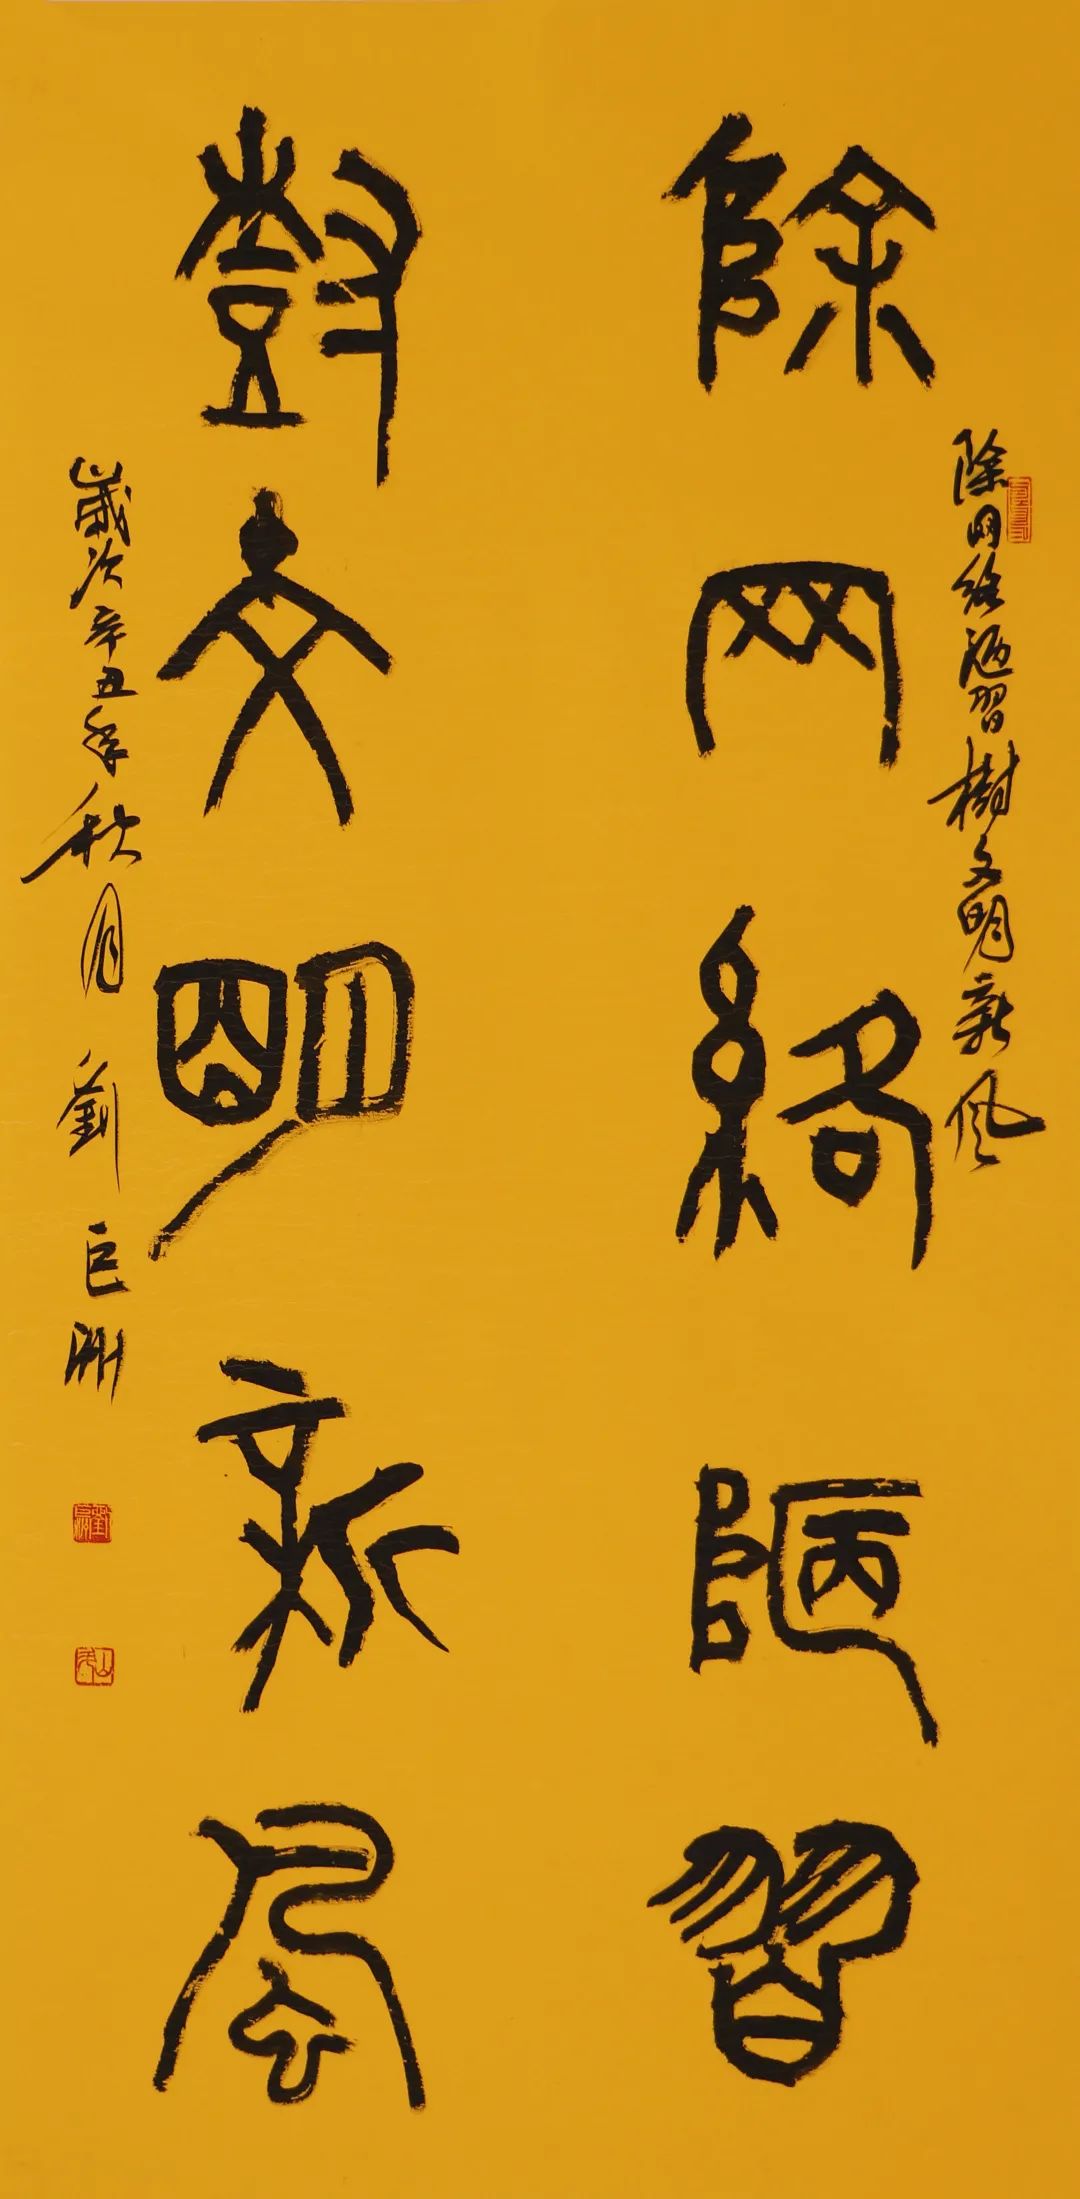 除网络陋習樹文明新风
除网絡陋習
樹文明新風
歲次辛丑年秋月劉巨洲